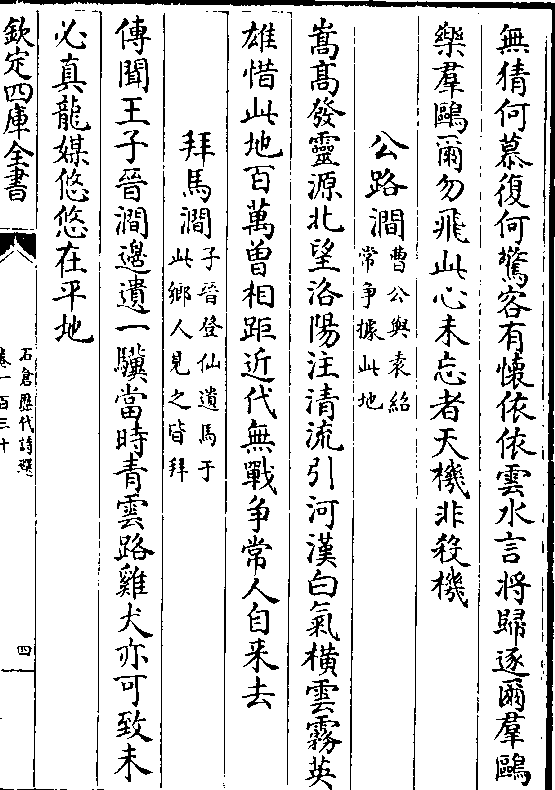 無猜何慕復何驚客有懷依依雲水言將歸逐爾羣鷗
樂羣鷗爾勿飛此心未忘者天機非殺機
公路澗曹公與袁紹
常爭據此地
嵩髙發靈源北望洛陽注清流引河漢白氣橫雲霧英
雄惜此地百萬曽相距近代無戰爭常人自来去
拜馬澗子晉登仙遺馬于
此鄉人見之皆拜
傳聞王子晉澗邉遺一驥當時青雲路雞犬亦可致未
必真龍媒悠悠在平地
欽定四庫全書
石倉歴代詩選
卷一百三十
四